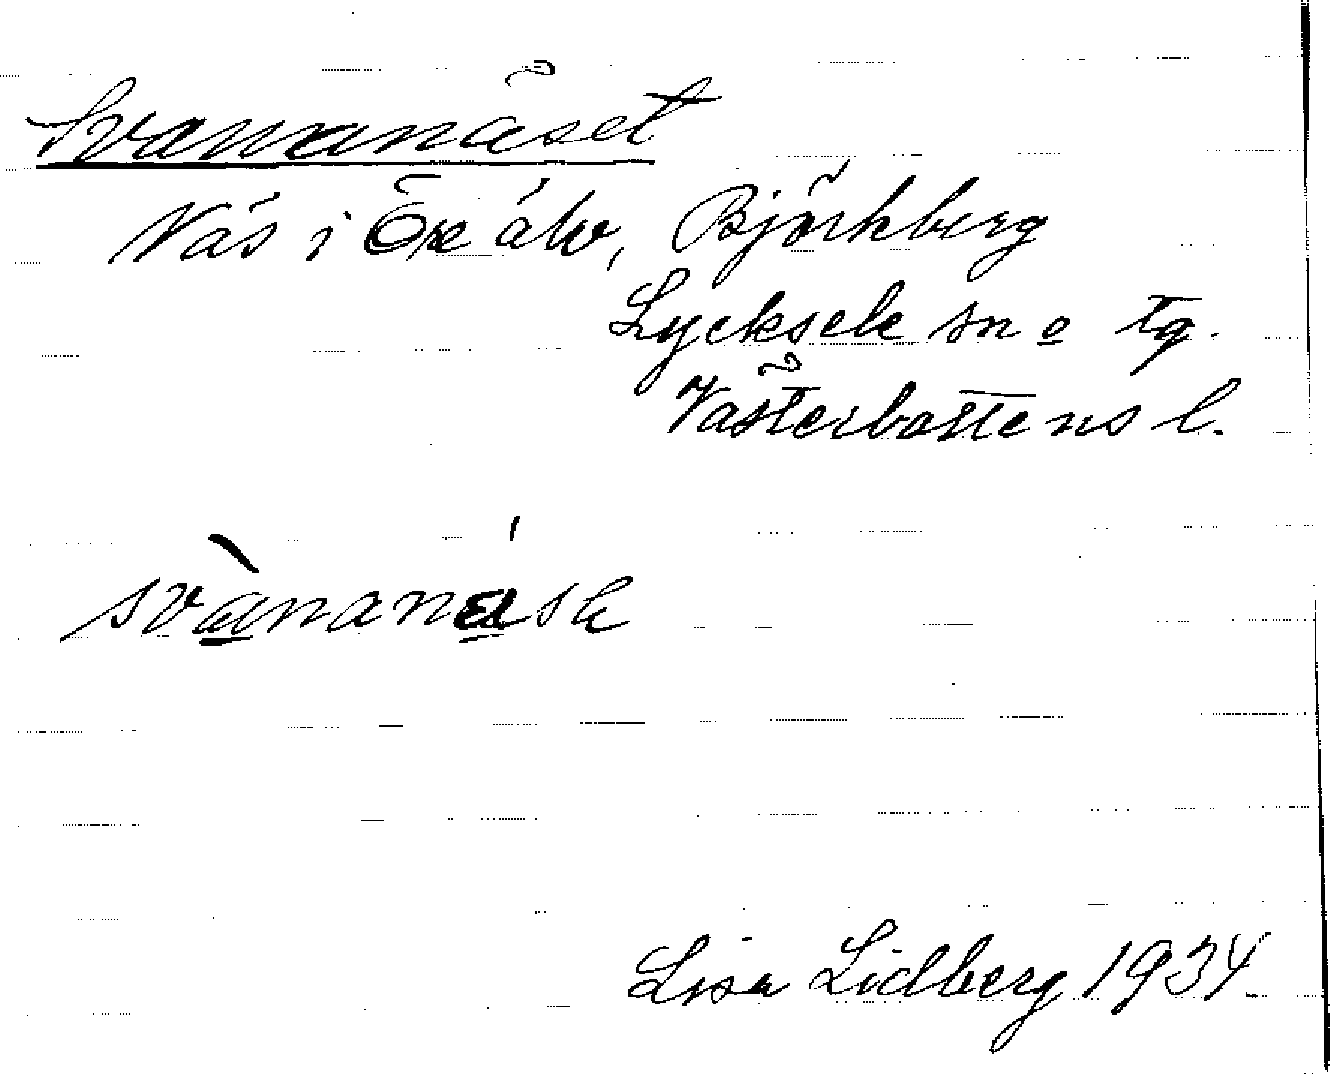 Svananäset
Näs i Öre älv, Björkberg
Lycksele sn o tg.
Västerbottens l.
svànanásE
Lisa Lidberg 1934